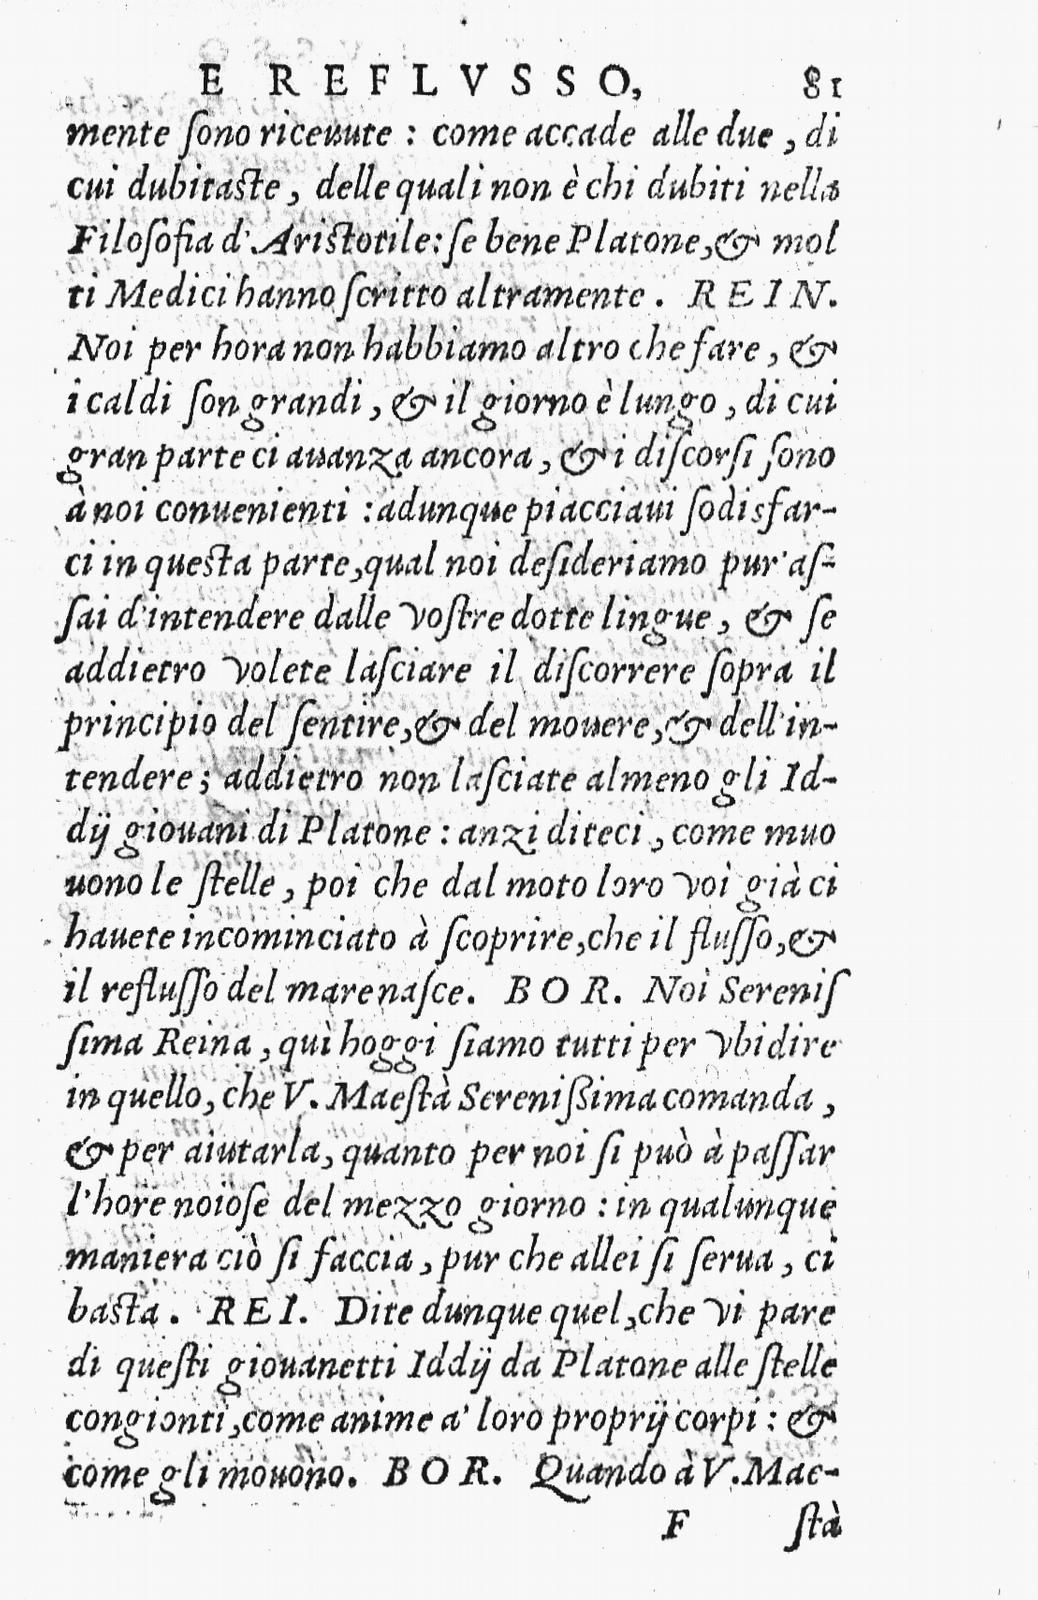 E REFLVSSO, 81
mente ſono riceuute : come accade alle due , di
cui dubitaste , delle quali non è chi dubiti nella
Filoſofia d'Aristotile: ſe bene Platone,& mol
ti Medici hanno ſcritto altramente . REIN.
Noi per hora non habbiamo altro che fare , &
i caldi ſon grandi , & il giorno è lungo , di cui
gran parte ci auanza ancora , & i diſcorſi ſono
à noi conuenienti : adunque piacciaui ſodisfar-
ci in questa parte,qual noi deſideriamo pur'aſ-
ſai d'intendere dalle voſtre dotte lingue , & ſe
addietro volete laſciare il diſcorrere ſopra il
principio del ſentire,& del mouere,& dell'in-
tendere ; addietro non laſciate almeno gli Id-
dij giouani di Platone : anzi diteci , come muo
uono le ſtelle , poi che dal moto loro voi già ci
hauete incominciato à ſcoprire,che il fluſſo,&
il refluſſo del mare naſce. BOR. Noi Sereniſ
ſima Reina , quì hoggi ſiamo tutti per vbidire
in quello, che V. Maeſtà Sereniſſima comanda ,
& per aiutarla, quanto per noi ſi può à paſſar
l'hore noioſe del mezzo giorno : in qualunque
maniera ciò ſi faccia , pur che allei ſi ſerua , ci
basta . REI. Dite dunque quel,che vi pare
di queſti giouanetti Iddij da Platone alle ſtelle
congionti,come anime a' loro proprij corpi : &
come gli mouono. BOR. Quando à V.Mae-
F ſtà